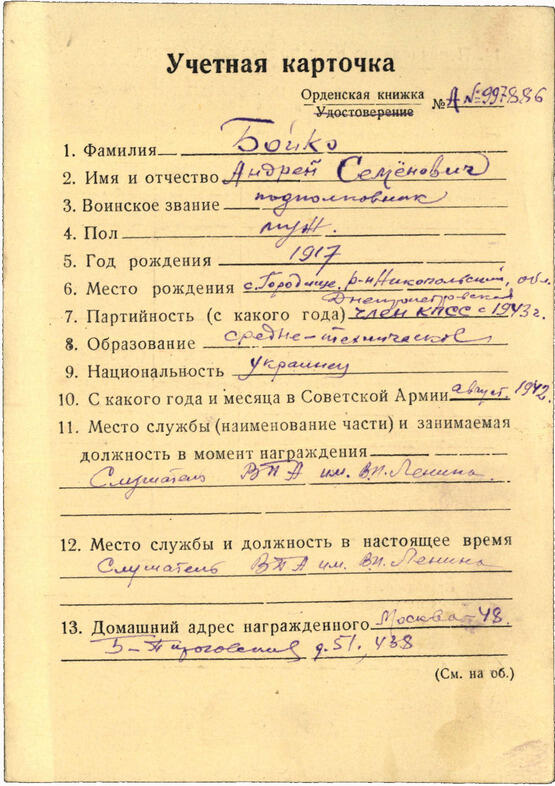 Учетная карточка
Орденская книжка
Удостоверение № А № 997886
1. Фамилия Бойко
2. Имя и отчество Андрей Семёнович
3. Воинское звание подполковник
4. Пол муж.
5. Год рождения 1917
6. Место рождения с. Городище, р-н Никопольский, обл.
Днепропетровская
7. Партийность (с какого года) член КПСС с 1943 г.
8. Образование средне-техническое
9. Национальность украинец
10. С какого года и месяца в Советской Армии август 1942.
11. Место службы (наименование части) и занимаемая
должность в момент награждения
Слушатель ВПА им. В.И. Ленина.
12. Место службы и должность в настоящее время
Слушатель ВПА им. В.И. Ленина
13. Домашний адрес награжденного Москва-48
Б-Пироговская д. 51, 438
(См. на об.)